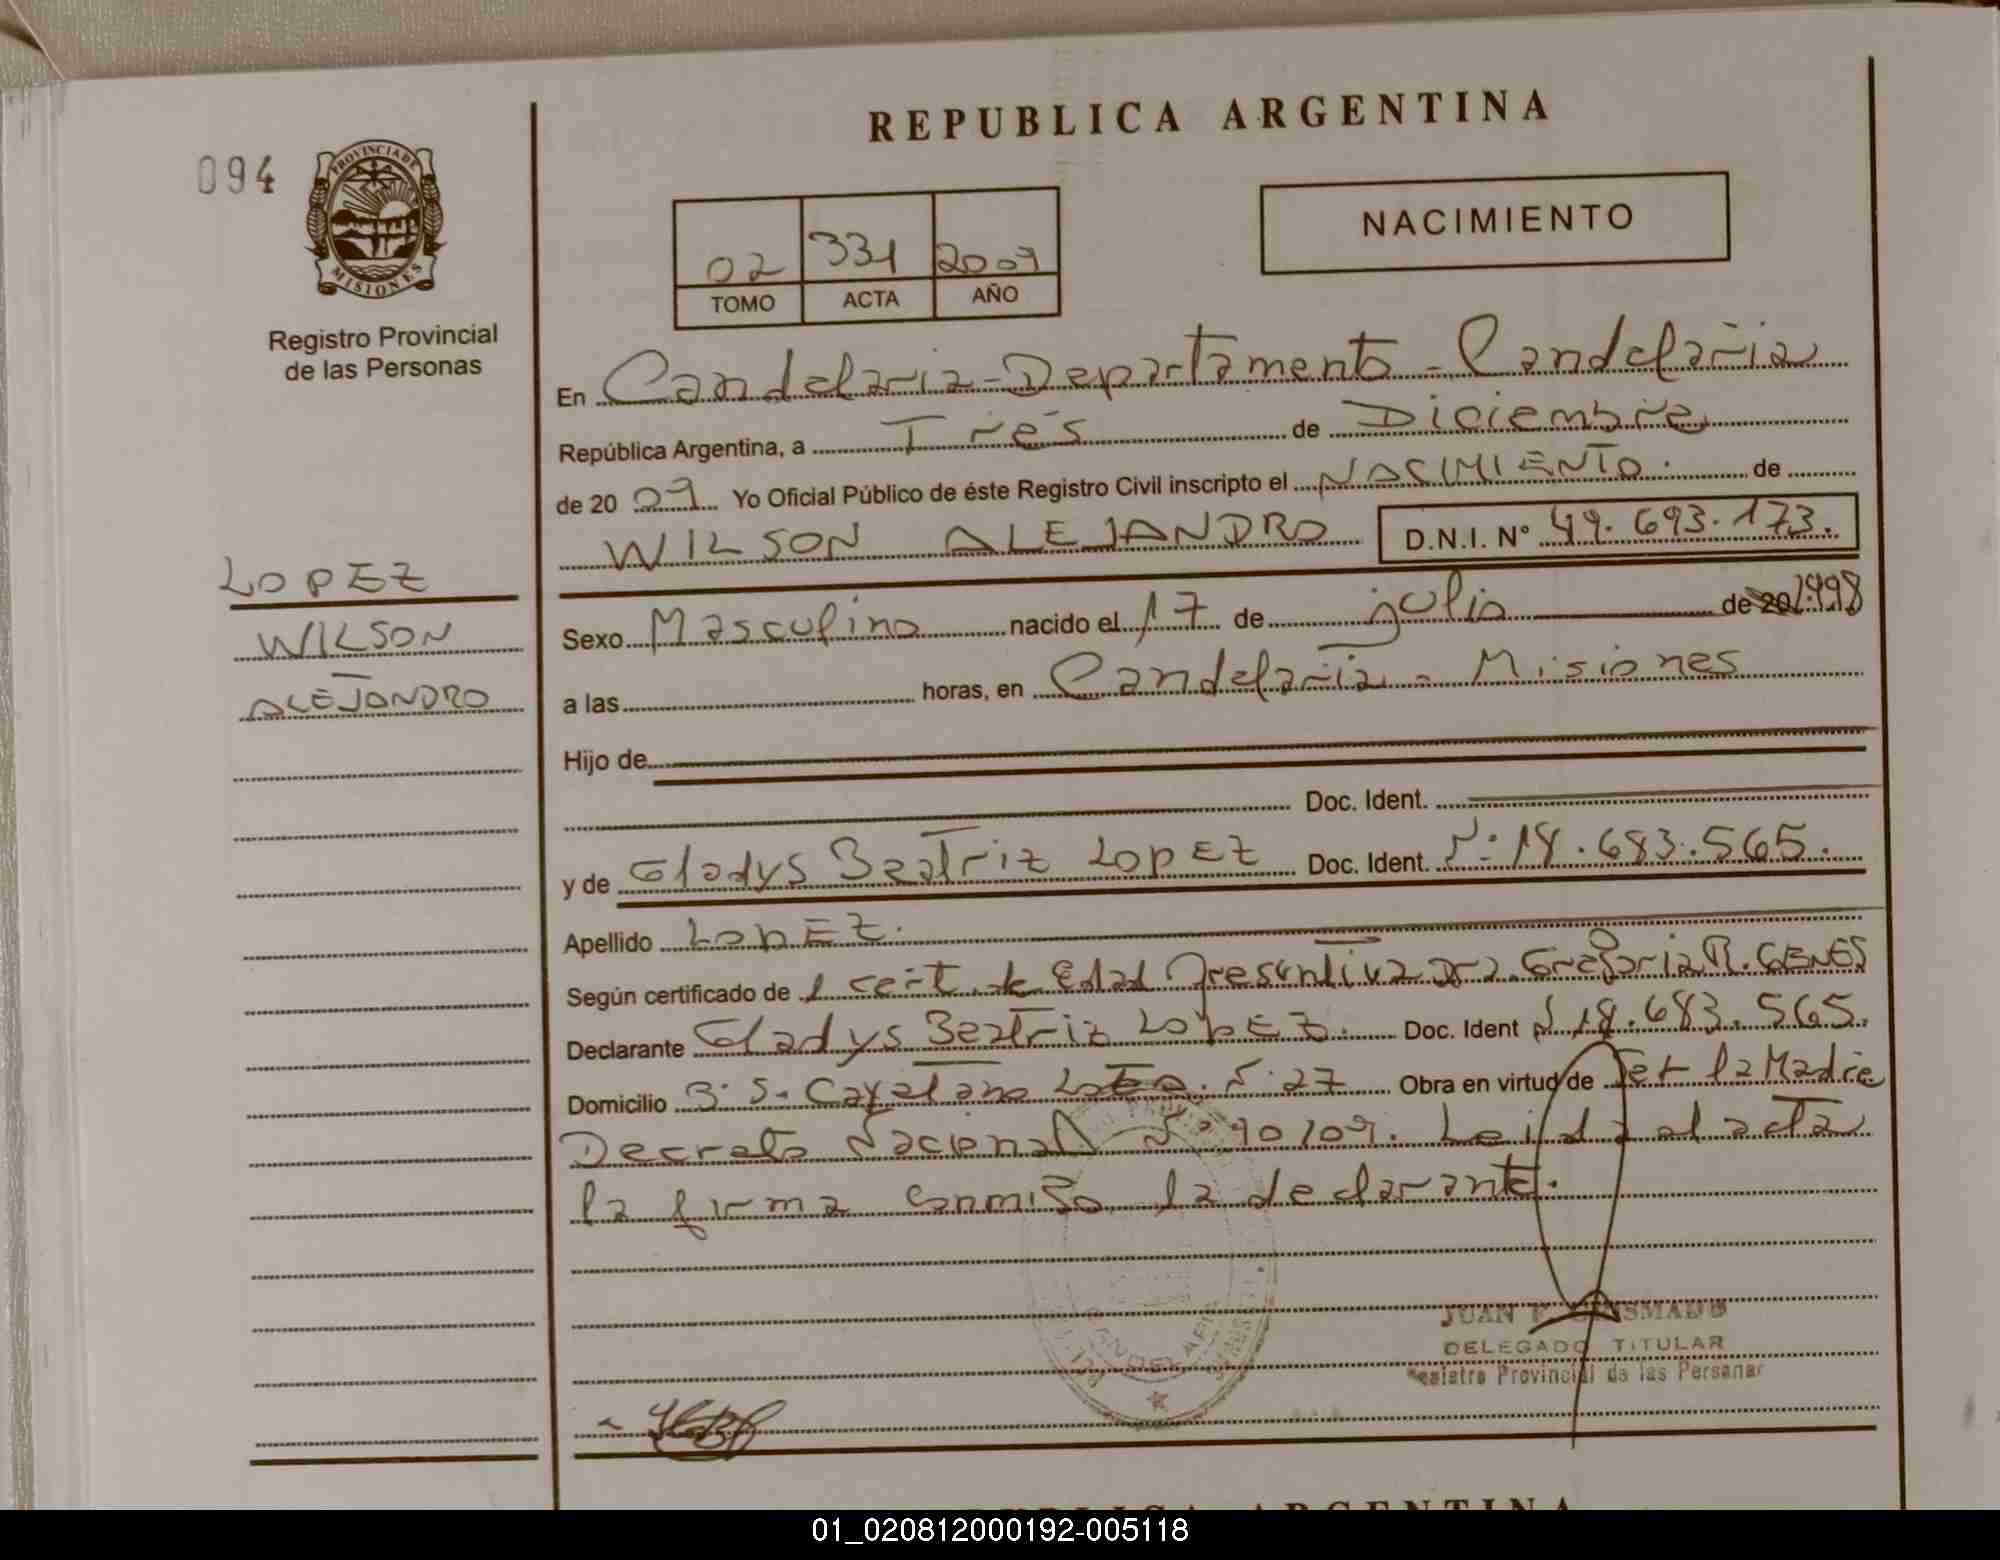 REPUBLICA ARGENTINA
094
PROVINCIA DE
MISIONES
Registro Provincial
de las Personas
02 331 2009
TOMO ACTA AÑO
NACIMIENTO
En Candelaria - Departamento - Candelaria
República Argentina, a Tres de Diciembre
de 20 09 Yo Oficial Público de éste Registro Civil inscripto el NACIMIENTO de
WILSON ALEJANDRO D.N.I. N° 49.693.173.
LOPEZ
WILSON
ALEJANDRO
Sexo Masculino nacido el 17 de julio de 20 1998
a las horas, en Candelaria - Misiones
Hijo de
Doc. Ident.
y de Gladys Beatriz LOPEZ Doc. Ident. N: 18.683.565.
Apellido LOPEZ.
Según certificado de 1 cert. de Edad Presuntiva Dra. Gregoria R. GENES
Declarante Gladys Beatriz LOPEZ. Doc. Ident N 18.683.565.
Domicilio B: S. Cayetano N: 27 Obra en virtud de Ser la Madre
Decreto Nacional N° 90/09. Leida el acta
la firma conmigo la declarante.
JUAN
DELEGADO TITULAR
Registro Provincial de las Personas
REPUBLICA ARGENTINA
01_020812000192-005118